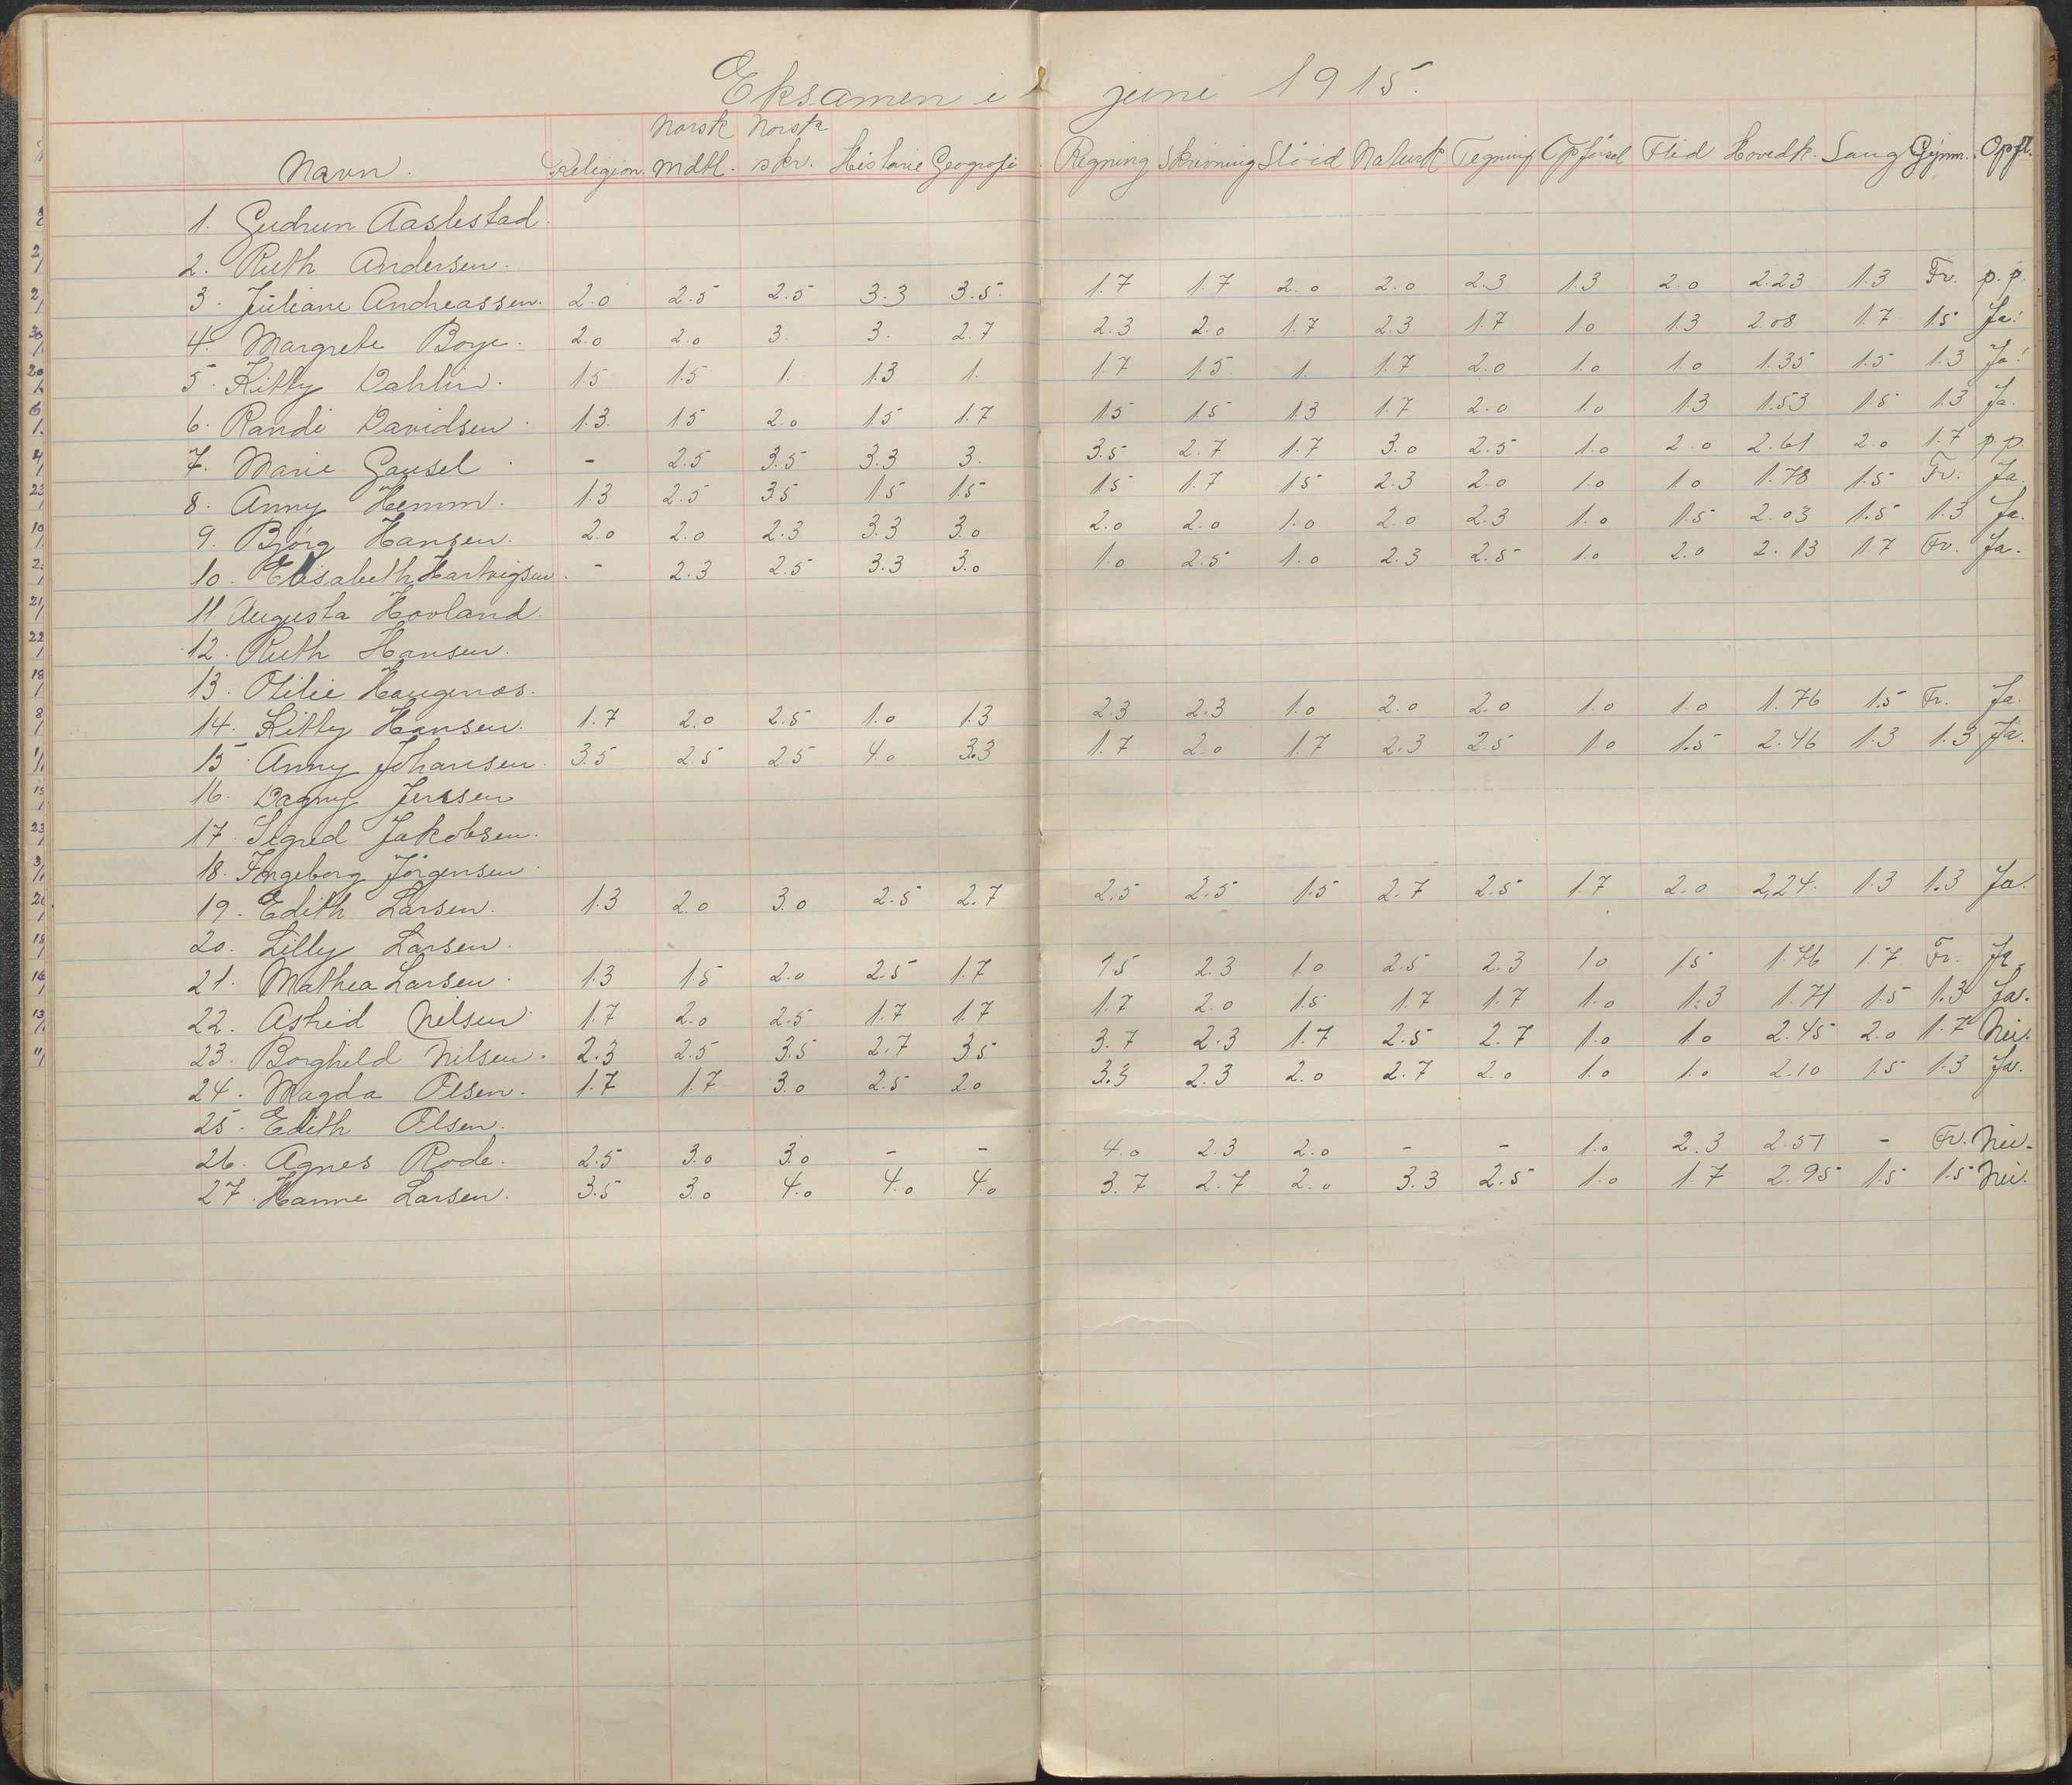 Eksamen i juni 1915.
Norsk Norsk
Navn. Religion. mdtl. skr. Historie Geografi Regning Skrivning Slöid Naturk Tegning Opförsel Flid Hovedk. Sang Gymn. Opfl.
1. Gudrun Aaslestad.
2. Ruth Andersen.
3. Juliane Andreassen. 2.0 2.5 2.5 3.3 3.5. 1.7 1.7 2.0 2.0 2.3 1.3 2.0 2.23 1.3 Fr. p.p.
4. Margrete Boye. 2.0 2.0 3. 3. 2.7 2.3 2.0 1.7 2.3 1.7 1.0 1.3 2.08 1.7 1.5 Ja.
5. Kitty Dahlin. 1.5 1.5 1. 1.3 1. 1.7 1.5 1. 1.7 2.0 1.0 1.0 1.35 1.5 1.3 Ja!
6. Randi Davidsen. 1.3. 1.5 2.0 1.5 1.7 1.5 1.5 1.3 1.7 2.0 1.0 1.3 1.53 1.5 1.3 Ja.
7. Marie Gausel. - 2.5 3.5 3.3 3. 3.5 2.7 1.7 3.0 2.5 1.0 2.0 2.61 2.0 1.7 p.p.
8. Anny Hemm. 1.3 2.5 3.5 1.5 1.5 1.5 1.7 1.5 2.3 2.0 1.0 1.0 1.78 1.5 Fr. Ja.
9. Bjørg Hansen. 2.0 2.0 2.3 3.3 3.0 2.0 2.0 1.0 2.0 2.3 1.0 1.5 2.03 1.5 1.3 Ja.
10. Elisabeth Hartvigsen. - 2.3 2.5 3.3 3.0 1.0 2.5 1.0 2.3 2.5 1.0 2.0 2.13 1.7 Fr. Ja.
11. Augusta Hovland.
12. Ruth Hansen.
13. Otilie Haugenæs.
14. Kitty Hansen. 1.7 2.0 2.5 1.0 1.3 2.3 2.3 1.0 2.0 2.0 1.0 1.0 1.76 1.5 Fr. Ja.
15. Anny Johansen. 3.5 2.5 2.5 4.0 3.3 1.7 2.0 1.7 2.3 2.5 1.0 1.5 2.46 1.3 1.3 Ja.
16. Dagny Jenssen
17. Sigrid Jakobsen.
18. Ingeborg Jörgensen.
19. Edith Larsen. 1.3 2.0 3.0 2.5 2.7 2.5 2.5 1.5 2.7 2.5 1.7 2.0 2,24. 1.3 1.3 Ja.
20. Lilly Larsen.
21. Mathea Larsen. 1.3 1.5 2.0 2.5 1.7 1.5 2.3 1.0 2.5 2.3 1.0 1.5 1.76 1.7 Fr. Ja.
22. Astrid Nilsen. 1.7 2.0 2.5 1.7 1.7 1.7 2.0 1.5 1.7 1.7 1.0 1.3 1.71 1.5 1.3 Ja.
23. Borghild Nilsen. 2.3 2.5 3.5 2.7 3.5 3.7 2.3 1.7 2.5 2.7 1.0 1.0 2.45 2.0 1.7 Nei.
24. Magda Olsen. 1.7 1.7 3.0 2.5 2.0 3.3 2.3 2.0 2.7 2.0 1.0 1.0 2.10 1.5 1.3 Ja.
25. Edith Olsen.
26. Agnes Rode. 2.5 3.0 3.0 - - 4.0 2.3 2.0 - - 1.0 2.3 2.57 - Fr. Nei.
27. Hanne Larsen. 3.5 3.0 4.0 4.0 4.0 3.7 2.7 2.0 3.3 2.5 1.0 1.7 2.95 1.5 1.5 Nei.